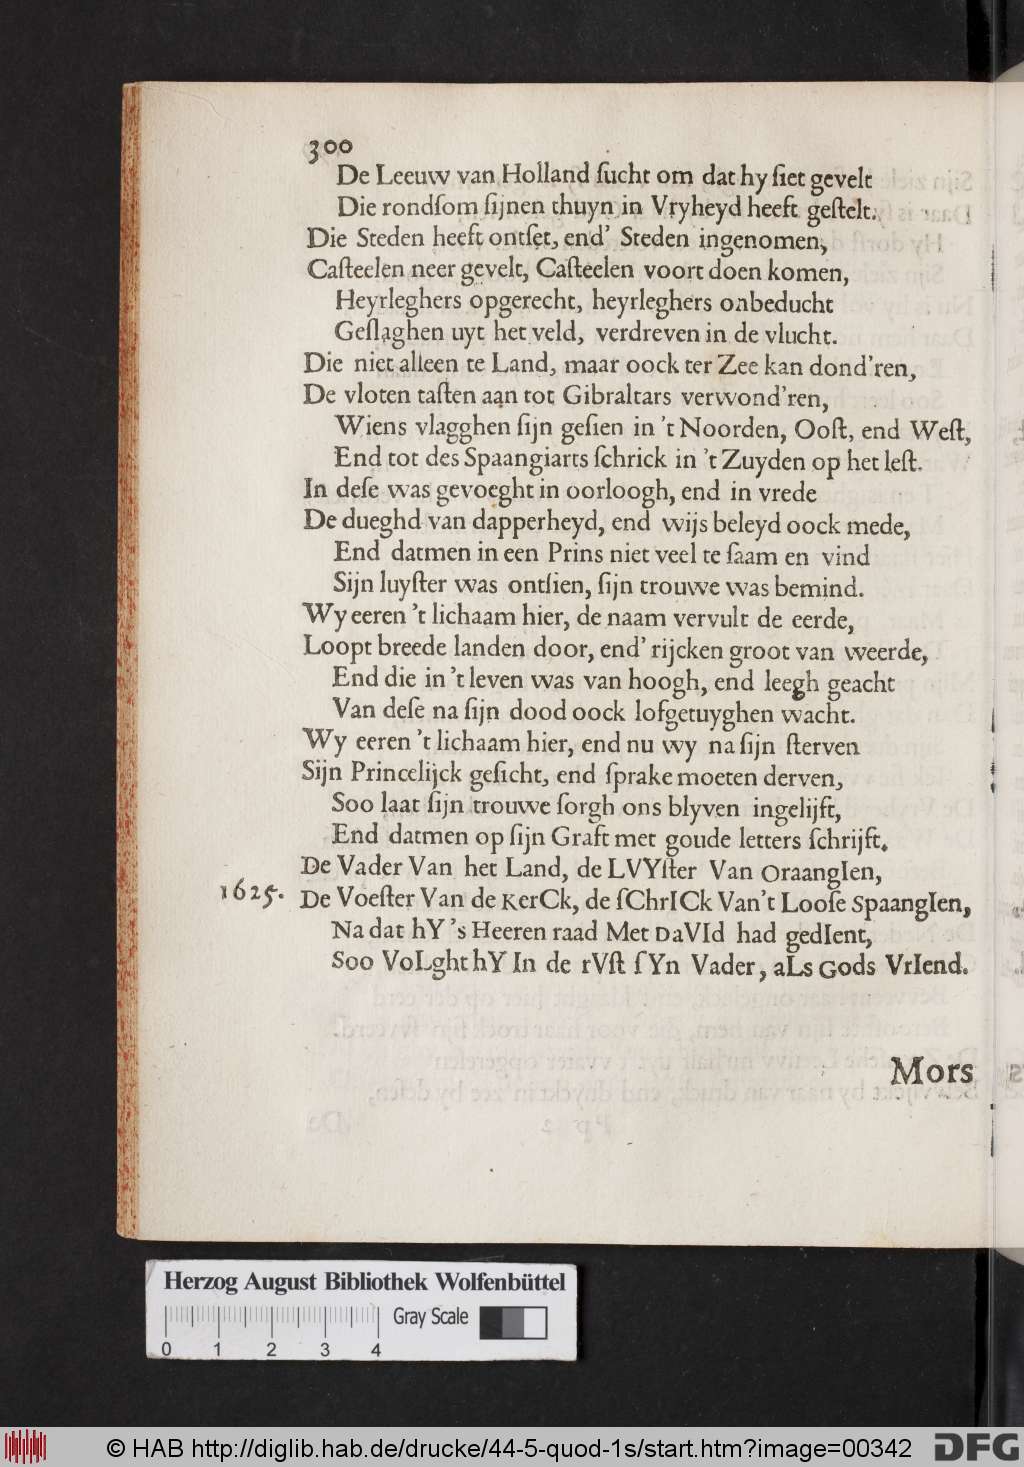 300
De Leeuw van Holland ſucht om dat hy ſiet gevelt
Die rondſom ſijnen thuyn in Vryheyd heeft geſtelt.
Die Steden heeft ontſet, end' Steden ingenomen,
Caſteelen neer gevelt, Caſteelen voort doen komen,
Heyrleghers opgerecht, heyrleghers onbeducht
Geſlaghen uyt het veld, verdreven in de vlucht.
Die niet alleen te Land, maar oock ter Zee kan dond'ren,
De vloten taſten aan tot Gibraltars verwond'ren,
Wiens vlagghen ſijn geſien in 't Noorden, Ooſt, end Weſt,
End tot des Spaangiarts ſchrick in 't Zuyden op het leſt.
In deſe was gevoeght in oorloogh, end in vrede
De dueghd van dapperheyd, end wijs beleyd oock mede,
End datmen in een Prins niet veel te ſaam en vind
Sijn luyſter was ontſien, ſijn trouwe was bemind.
Wy eeren 't lichaam hier, de naam vervult de eerde,
Loopt breede landen door, end' rijcken groot van weerde,
End die in 't leven was van hoogh, end leegh geacht
Van deſe na ſijn dood oock lofgetuyghen wacht.
Wy eeren 't lichaam hier, end nu wy na ſijn ſterven
Sijn Princelijck geſicht, end ſprake moeten derven,
Soo laat ſijn trouwe ſorgh ons blyven ingelijft,
End datmen op ſijn Graft met goude letters ſchrijft.
De Vader Van het Land, de LVYſter Van OraangIen,
1625. De Voeſter Van de KerCk, de ſChrICk Van't Looſe SpaangIen,
Na dat hY 's Heeren raad Met DaVId had gedIent,
Soo VoLght hY In de rVſt ſYn Vader, aLs Gods VrIend.
Mors
Herzog August Bibliothek Wolfenbüttel
Gray Scale
0 1 2 3 4
© HAB http://diglib.hab.de/drucke/44-5-quod-1s/start.htm?image=00342
DFG